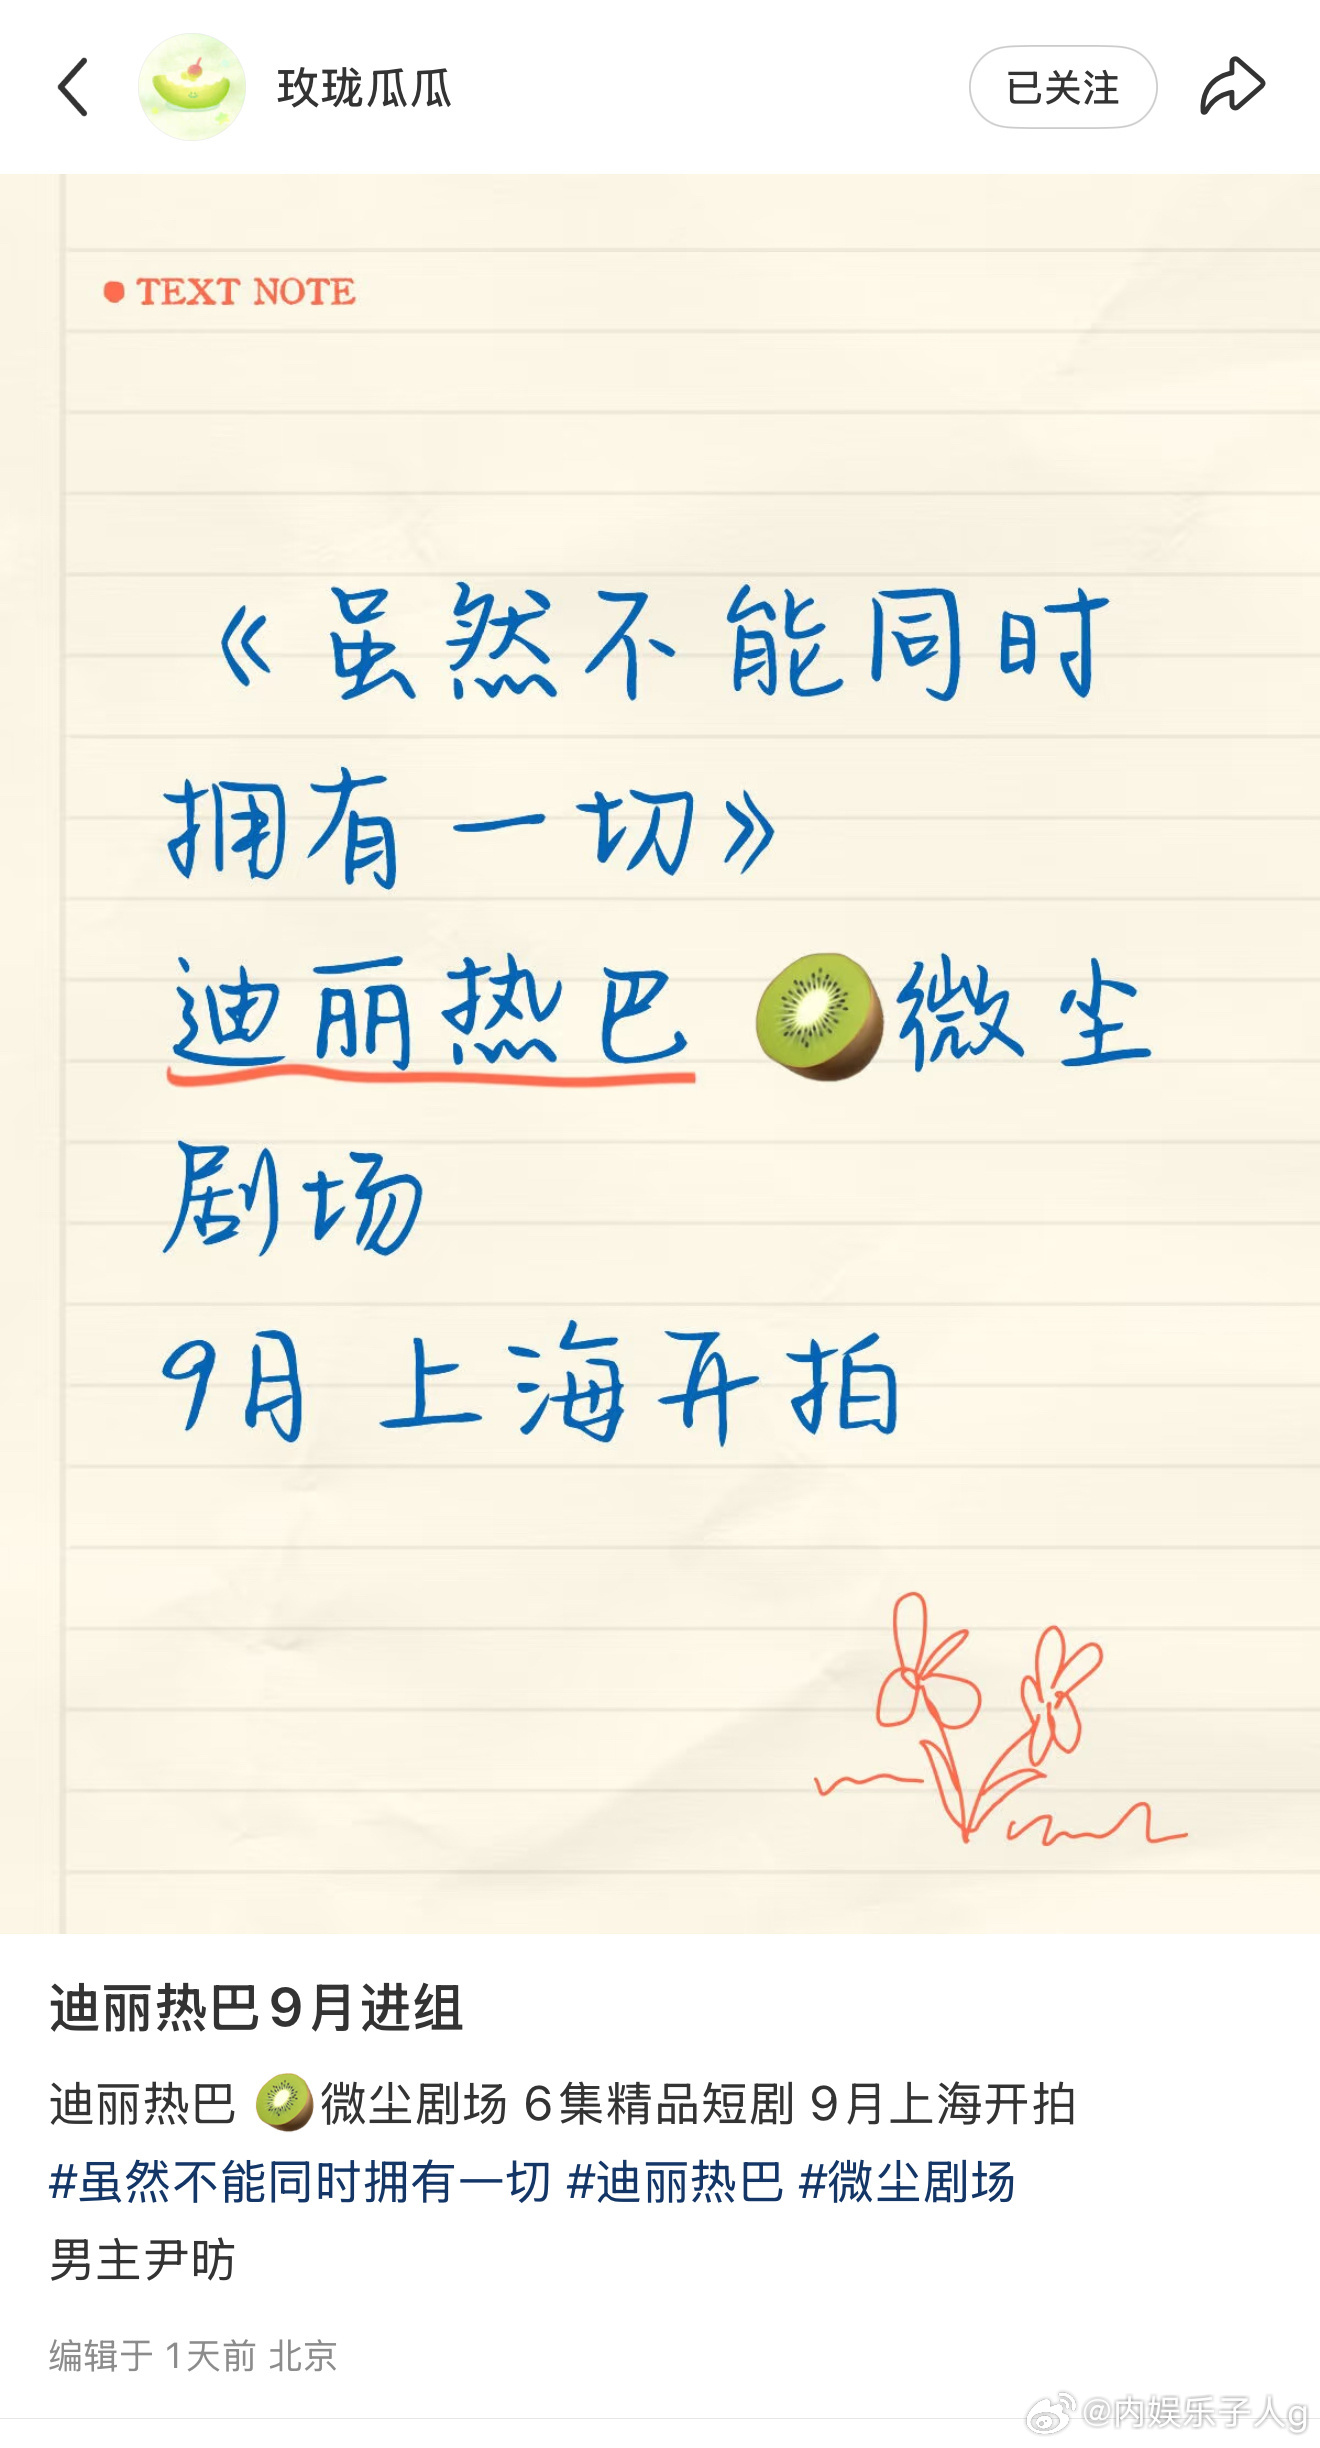 玫珑瓜瓜
已关注
TEXT NOTE
《虽然不能同时
拥有一切》
迪丽热巴 🥝微尘
剧场
9月 上海开拍
迪丽热巴9月进组
迪丽热巴 🥝微尘剧场 6集精品短剧 9月上海开拍
#虽然不能同时拥有一切 #迪丽热巴 #微尘剧场
男主尹昉
编辑于 1天前 北京
@内娱乐子人g